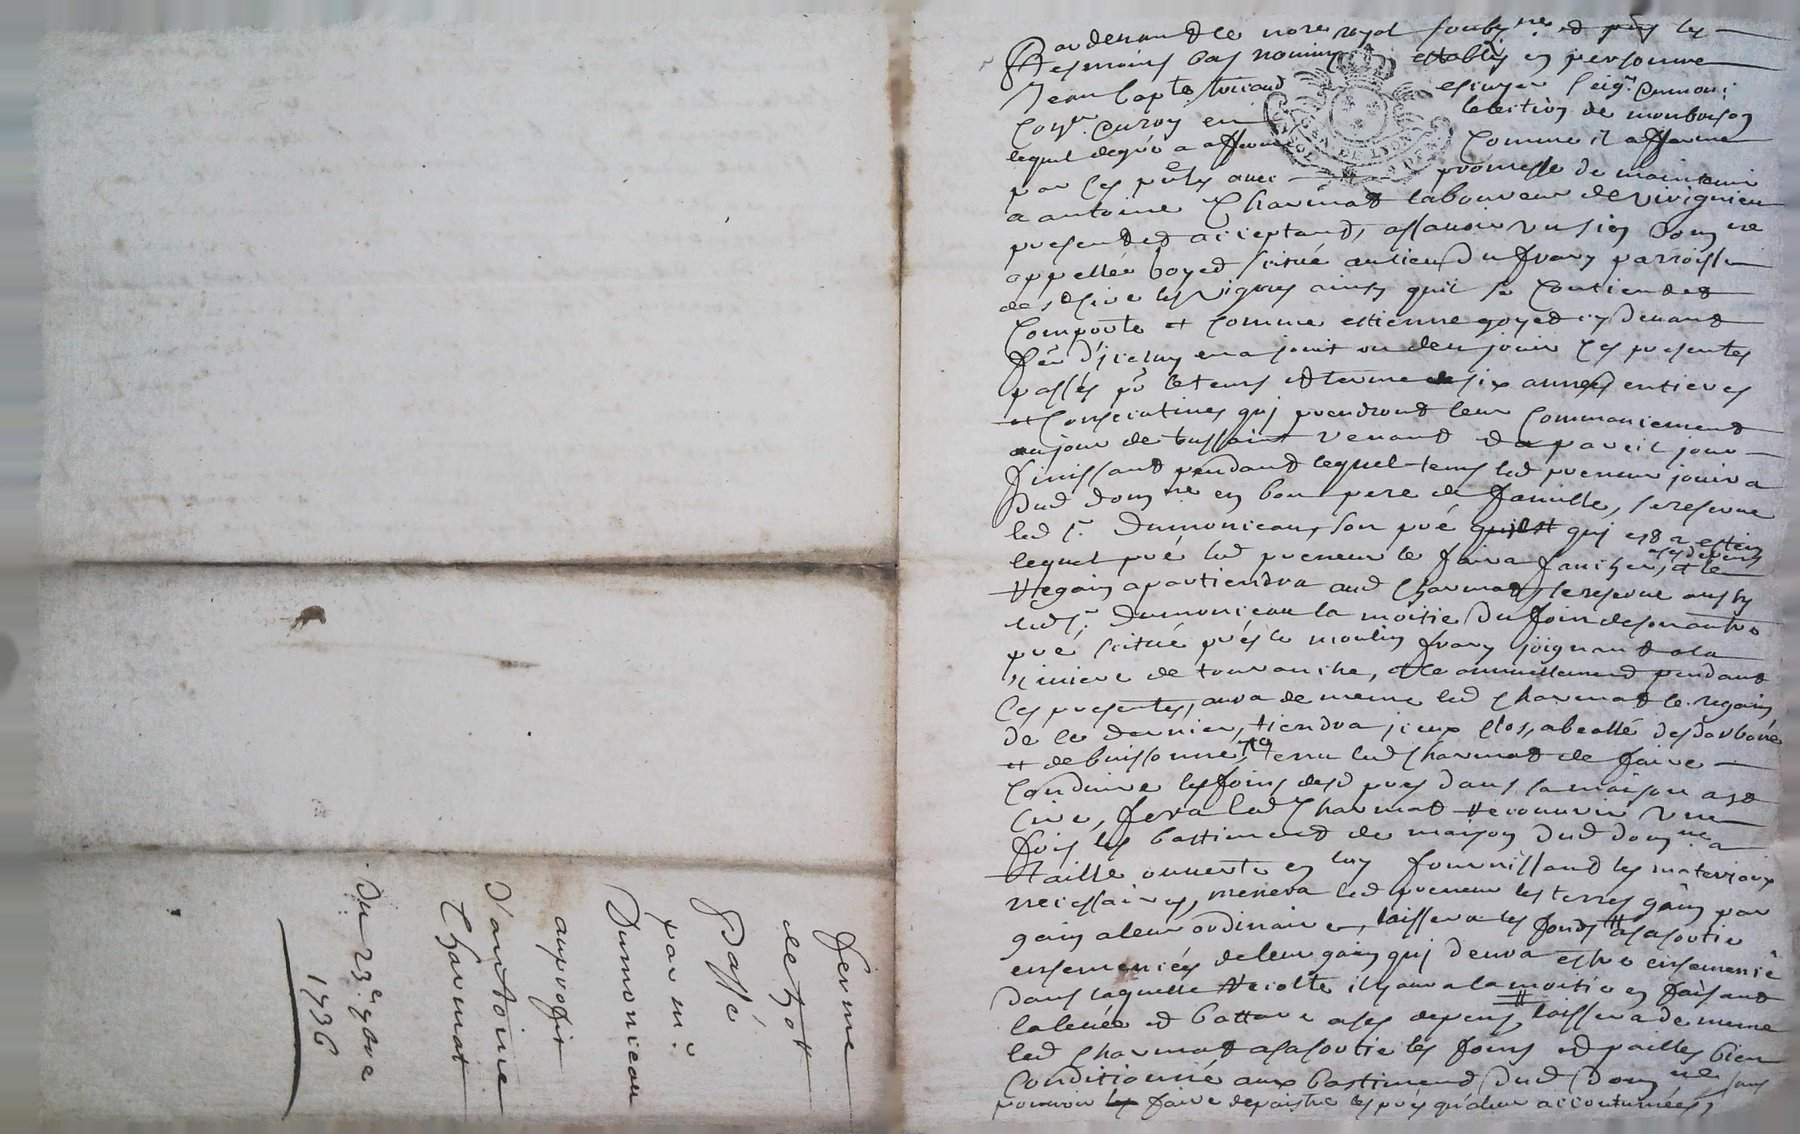 Pardevant le no.re royal soubs.né et pñs les
tesmoins bas nommés establis en personne
Jean bapte escuyer seig.r Dumoni
Con.er du roy en lelection de monbrison
lequel degré a afferme comme il afferme
par ces pntes avec promesse de maintenir
a antoine Charmat laboureur de virignieu
present et acceptant, assavoir un sien Dom.ne
appellée goyet scitué au lieu du frary parroisse
de st Cire les vignes ainsy quil se Contient et
Comporte et Comme estienne goyet cy devant
fer d'jceluy en a jouit ou deu jouir Ces presentes
passés pr le tems et terme de six années entieres
et Consecutives qui prendront leur Commancement
au jour de tussaint venant et a pareil jour
finissant pendant lequel tems led preneur jouira
Dud dom.ne en bon pere de famille, se reserve
led s.r Dumonceau son pré qui
lequel pré led preneur le faira faucher, et le
a ses depens
regain apartiendra aud Charmat, se reserve aussy
led s.r Dumonceau la moitie Du foin de son autre
pré scitué prés le moulin frary joignant a la
riviere de tourranche, et le annuellement pendant
Ces presentes, aura de meme led Charmat le regain
de ce dernier, tiendra jceux clos,
et de buissonné, tenu led Charmat de faire
Conduire les foins desd prés dans sa maison a st
Cire, fera led Charmat recouvrir une
fois les bastiment de maison Dud dom.ne a
taille ouverte en luy fournissant les materiaux
necessaires, menera led preneur les terres gain par
gain a leur ordinaire, laissera les fonds a sa sortie
ensemencés de leur gain qui devra estre ensemencé
Dans laquelle recolte il aura la moitie en faisant
la levée et battre a ses depens, laissera de meme
led Charmat a sa sortie les foins et pailles bien
Conditionné aux bastiment Dud Dom.ne sans
pouvoir faire depaistre les prés qu'aleur accoutumées,
ferme
de
Passé
par m.r
Dumonceau
au proffit
d'antoine
Charmat
Du 23e 9bre
1736